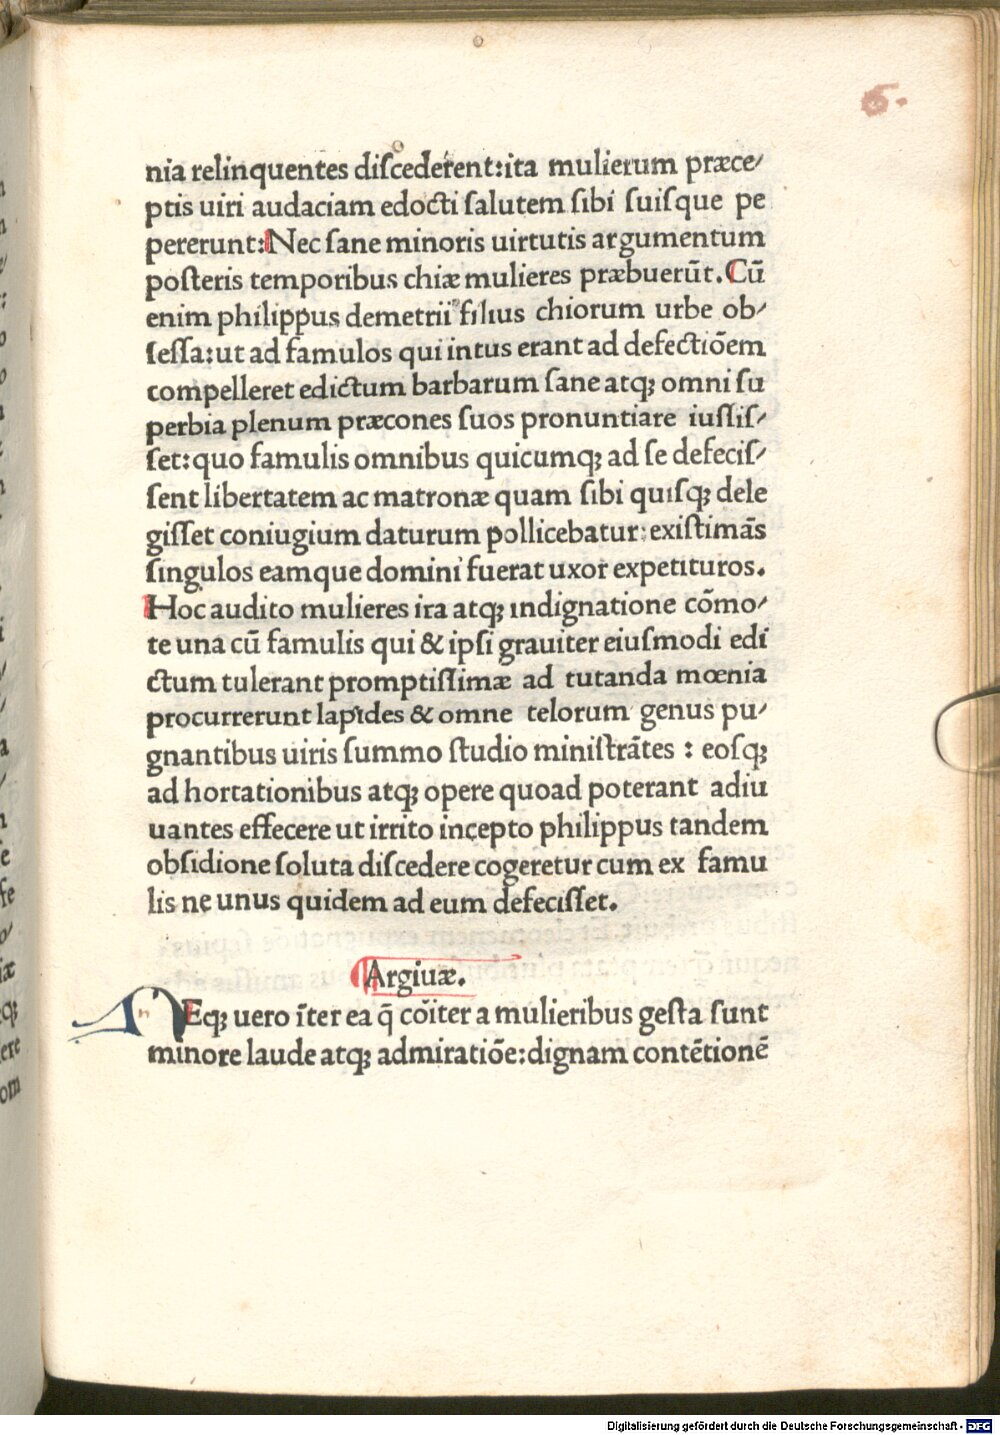 6.
nia relinquentes diſcederent:ita mulierum præce⸗
ptis uiri audaciam edocti ſalutem ſibi ſuiſque pe
pererunt:Nec ſane minoris uirtutis argumentum
poſteris temporibus chiæ mulieres præbuerūt.Cū
enim philippus demetrii filius chiorum urbe ob⸗
ſeſſa:ut ad famulos qui intus erant ad defectiōem
compelleret edictum barbarum ſane atqꝫ omni ſu
perbia plenum præcones ſuos pronuntiare iuſſiſ⸗
ſet:quo famulis omnibus quicumqꝫ ad ſe defeciſ⸗
ſent libertatem ac matronæ quam ſibi quiſqꝫ dele
giſſet coniugium daturum pollicebatur:exiſtimās
ſingulos eamque domini fuerat uxor expetituros.
Hoc audito mulieres ira atqꝫ indignatione cōmo⸗
te una cū famulis qui & ipſi grauiter eiuſmodi edi
ctum tulerant promptiſſimæ ad tutanda mœnia
procurrerunt lapides & omne telorum genus pu⸗
gnantibus uiris ſummo ſtudio miniſtrātes : eoſqꝫ
ad hortationibus atqꝫ opere quoad poterant adiu
uantes effecere ut irrito incepto philippus tandem
obſidione ſoluta diſcedere cogeretur cum ex famu
lis ne unus quidem ad eum defeciſſet.
Argiuæ.
NEqꝫ uero īter ea q̄ cōiter a mulieribus geſta ſunt
minore laude atqꝫ admiratiōe:dignam contētionē
Digitalisierung gefördert durch die Deutsche Forschungsgemeinschaft - DFG